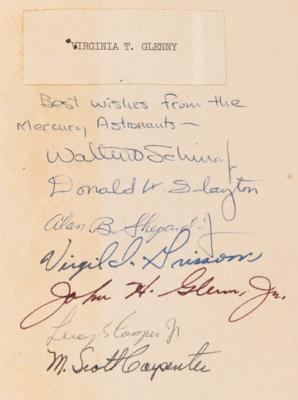 VIRGINIA T. GLENNY
Best wishes from the
Mercury Astronauts—
Walter M Schirra Jr
Donald K. Slayton
Alan B. Shepard Jr
Virgil I. Grissom
John H. Glenn, Jr.
Leroy G Cooper Jr
M. Scott Carpenter